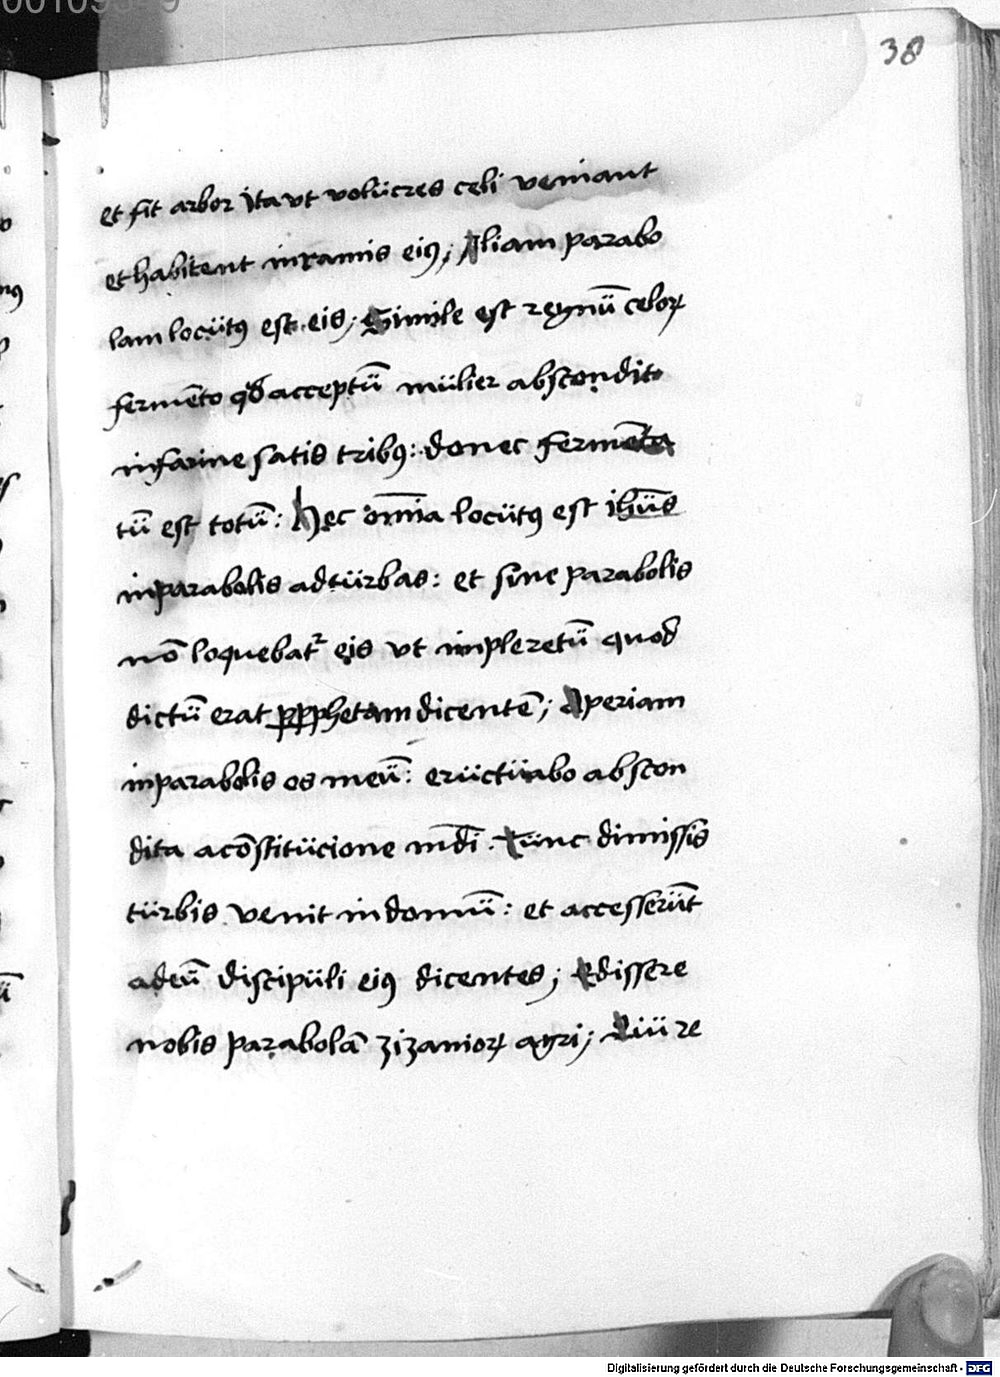 38
et fit arbor ita vt volucres celi veniant
et habitent in ramis eiꝰ; Aliam parabo
lam locutꝰ est eis; Simile est regnū celoꝝ
fermēto qd acceptū mulier abscondit
in farine satis tribꝰ: donec fermēta
tū est totū: Hec om̅ia locutꝰ est ih̅us
in parabolis ad turbas: et sine parabolis
nō loquebatr eis vt impleretū quod
dictū erat ꝑ ꝓphetam dicentē; Aperiam
in parabolis os meū: eructuabo abscon
dita a cōstitucione mūdi. Tunc dimissis
turbis venit in domū: et accesserūt
ad eū discipuli eiꝰ dicentes; Edissere
nobis parabolā zizanioꝝ agri; Qui re
Digitalisierung gefördert durch die Deutsche Forschungsgemeinschaft - DFG